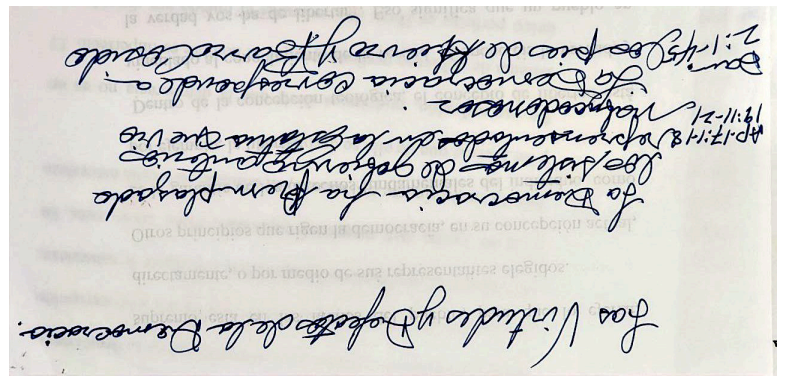 Las Virtudes y Defectos de la Democracia.
La Democracia ha Remplazado
los sistemas de gobierno
Ap.17:1-18 representados en la Estatua que vio
19:11-21 Nabucodonosor.
La Democracia corresponde a
Dan. los pies de Hierro y Barro cocido
2:1-45